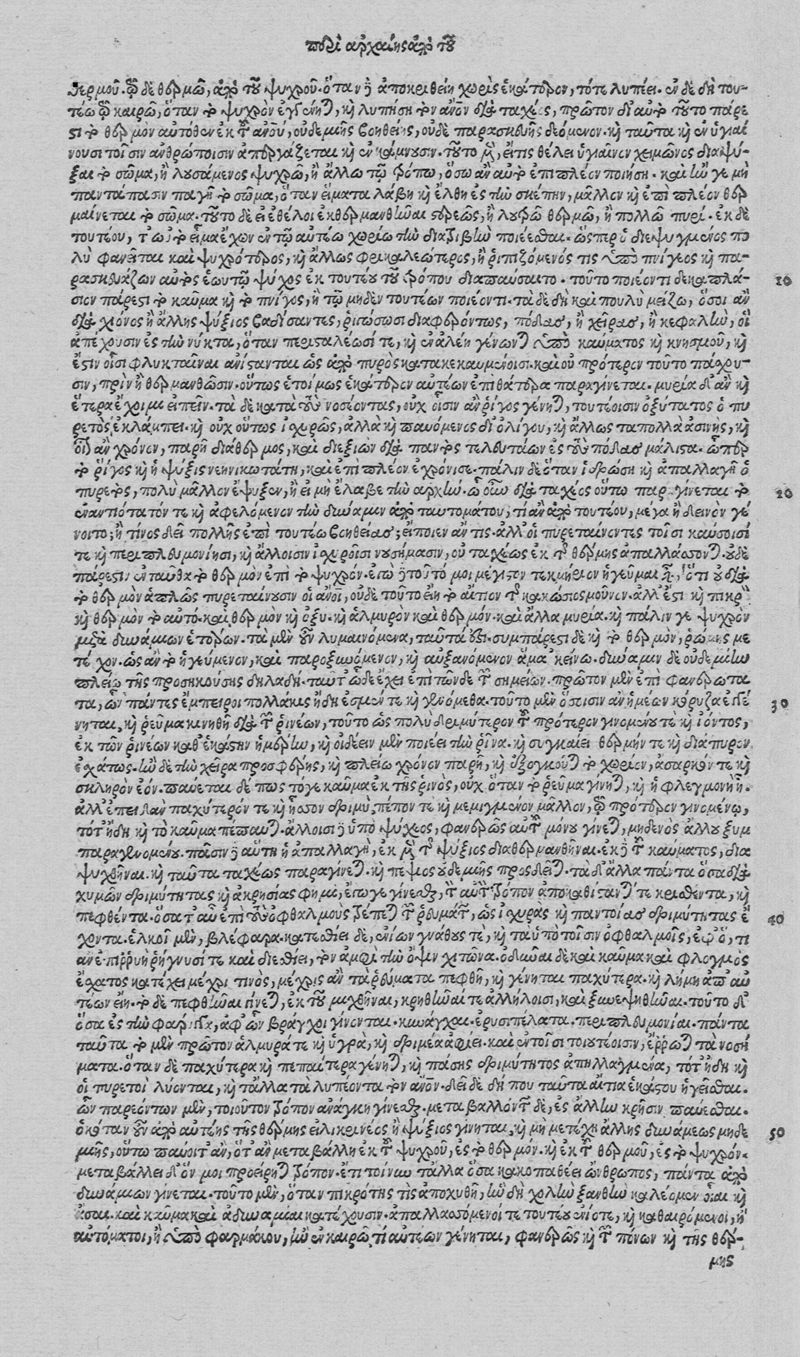 περὶ ἀρχαίης
θερμοῦ. τῷ δὲ θερμῷ, ἀπὸ τοῦ ψυχροῦ. ὅταν δ' ἀποκριθείη χωρὶς ἑκάτερον, τότε λυπέει. ἐν δὲ δὴ του-
τέῳ τῷ καιρῷ, ὅταν τὸ ψυχρὸν ἐγγένηται, καὶ λυπήσῃ τὸν ἄνθρωπον διὰ τάχεος, πρῶτον δι' αὐτὸ τοῦτο πάρε-
στι τὸ θερμὸν αὐτόθεν ἐκ τοῦ ἀνθρώπου, οὐδεμιῆς βοηθείης, οὐδὲ παρασκευῆς δεόμενον. καὶ ταῦτα καὶ ἐν ὑγιαί
νουσι τοῖσιν ἀνθρώποισιν ἀπεργάζεται καὶ ἐν κάμνουσιν. τοῦτο μὲν, εἴ τις θέλει ὑγιαίνων χειμῶνος διαψύ-
ξαι τὸ σῶμα, ἢ λουσάμενος ψυχρῷ, ἢ ἄλλῳ τῳ τρόπῳ, ὅσῳ ἂν αὐτὸ ἐπιπλέον ποιήσῃ. καὶ ἢν γε μὴ
πανταπάσιν παγῇ τὸ σῶμα, ὅταν εἵματα λάβῃ καὶ ἔλθῃ ἐς τὴν σκέπην, μᾶλλον καὶ ἐπὶ πλέον θερ
μαίνεται τὸ σῶμα. τοῦτο δὲ εἰ ἐθέλοι ἐκθερμανθῆναι ἰσχυρῶς, ἢ λουτρῷ θερμῷ, ἢ πολλῷ πυρί. ἐκ δὲ
τουτέου, τωὐτὸ εἷμα ἔχων ἐν τῷ αὐτέῳ χωρίῳ τὴν διατριβὴν ποιέεσθαι. ὥσπερ ὁ διεψυγμένος πο
λὺ φανεῖται καὶ ψυχρότερος, καὶ ἄλλως φρικαλεώτερος, ἢ ῥιπιζόμενός τις ὑπὸ πνίγεος καὶ πα-
ρασκευάζων αὐτὸς ἑωυτῷ ψῦχος ἐκ τουτέου τοῦ τρόπου διαπαύσαιτο. τοῦτο ποιέοντι δεκαπλά- 10
σιον πάρεστι τὸ καῦμα καὶ τὸ πνῖγος, ἢ τῷ μηδὲν τουτέων ποιέοντι. τὰ δὲ δὴ καὶ πουλὺ μείζω, ὅσοι ἂν
διὰ χιόνος ἢ ἄλλης ψύξιος βαδίσαντες, ῥιγώσωσι διαφερόντως, πόδας, ἢ χεῖρας, ἢ κεφαλὴν, οἷ
α πάσχουσιν ἐς τὴν νύκτα, ὅταν περισταλέωσί τε, καὶ ἐν ἀλέῃ γένωνται ὑπὸ καύματος καὶ κνησμοῦ, καὶ
ἔστιν οἷσι φλύκταιναι ἀνίστανται ὡς ἀπὸ πυρὸς κατακεκαυμένοισι. καὶ οὐ πρότερον τοῦτο πάσχου-
σιν, πρὶν ἢ θερμανθῶσιν. οὕτως ἑτοίμως ἑκάτερον αὐτέων ἐπὶ θάτερα παραγίνεται. μυρία δ' ἂν καὶ
ἕτερα ἔχοιμι εἰπεῖν. τὰ δὲ κατὰ τοὺς νοσέοντας, οὐχ οἷσιν ἂν ῥῖγος γένηται, τουτέοισιν ὀξύτατος ὁ πυ
ρετὸς ἐκλάμπει. καὶ οὐχ οὕτως ἰσχυρῶς, ἀλλὰ καὶ παυόμενος δι' ὀλίγου, καὶ ἄλλως τὰ πολλὰ ἀσινὴς, καὶ
ὅσον ἂν χρόνον, παρῇ διάθερμος, καὶ διεξιὼν διὰ παντὸς τελευτᾷ ἐς τοὺς πόδας μάλιστα. ὅπερ
τὸ ῥῖγος καὶ ἡ ψῦξις νεηνικωτάτη, καὶ ἐπὶ πλέον ἐχρόνισε. πάλιν δὲ ὅταν ἱδρώσῃ καὶ ἀπαλλαγῇ ὁ
πυρετὸς, πολὺ μᾶλλον ἔψυξεν, ἢ εἰ μὴ ἔλαβε τὴν ἀρχήν. ᾧ οὖν διὰ τάχεος οὕτω παραγίνεται τὸ 20
ἐναντιώτατόν τε καὶ ἀφελόμενον τὴν δύναμιν ἀπὸ ταυτομάτου, τί ἂν ἀπὸ τουτέου, μέγα ἢ δεινὸν γέ
νοιτο; ἢ τίνος δεῖ πολλῆς ἐπὶ τουτέῳ βοηθείας; εἴποιεν ἄν τις. ἀλλ' οἱ πυρεταίνοντες τοῖσι καύσοισί
τε καὶ περιπλευμονίῃσι, καὶ ἄλλοισιν ἰσχυροῖσι νουσήμασιν, οὐ ταχέως ἐκ τῆς θέρμης ἀπαλλάσσονται. οὐδὲ
πάρεστιν ἐνταῦθα τὸ θερμὸν ἐπὶ τὸ ψυχρόν. ἐγὼ δὲ τοῦτό μοι μέγιστον τεκμήριον ἡγεῦμαι εἶναι, ὅτι οὐ διὰ
τὸ θερμὸν ἁπλῶς πυρεταίνουσιν οἱ ἄνθρωποι, οὐδὲ τοῦτο εἴη τὸ αἴτιον τῆς κακώσιος μοῦνον. ἀλλ' ἔστι καὶ πικρὸν
καὶ θερμὸν τὸ αὐτό. καὶ θερμὸν καὶ ὀξύ. καὶ ἁλμυρὸν καὶ θερμόν. καὶ ἄλλα μυρία. καὶ πάλιν γε ψυχρὸν
μετὰ δυναμίων ἑτέρων. τὰ μὲν οὖν λυμαινόμενα, ταῦτά ἐστι. συμπάρεστι δὲ καὶ τὸ θερμὸν, ῥώμης με
τέχον. ὡς ἂν τὸ ἡγεύμενον, καὶ παροξυνόμενον, καὶ αὐξανόμενον ἅμα κείνῳ. δύναμιν δὲ οὐδεμίην
πλείω τῆς προσηκούσης δηλαδή. ταῦτ' ὧδε ἔχει ἐπὶ τῶνδε τῶν σημείων. πρῶτον μὲν ἐπὶ φανερώτα
τα, ὧν πάντες ἔμπειροι πολλάκις ἤδη ἐσμέν τε καὶ γινόμεθα. τοῦτο μὲν ὁποῖσιν ἂν ἡμέων κόρυζα ἐγγέ 30
νηται, καὶ ῥεῦμα κινηθῇ διὰ τῶν ῥινέων, τοῦτο ὡς πολὺ δριμύτερον τοῦ πρότερον γινομένου τε καὶ ἰόντος,
ἐκ τῶν ῥινέων καθ' ἑκάστην ἡμέρην, καὶ οἰδέειν μὲν ποιέει τὴν ῥῖνα. καὶ συγκαίει θερμήν τε καὶ διάπυρον
ἐσχάτως. ἢν δὲ τὴν χεῖρα προσφέρῃς, καὶ πλείω χρόνον παρῇ, καὶ ἐξογκοῦται τὸ χωρίον, ἄσαρκόν τε καὶ
σκληρὸν ἐόν. παύεται δέ πως τόγε καῦμα ἐκ τῆς ῥινὸς, οὐχ ὅταν τὸ ῥεῦμα γίνηται, καὶ ἡ φλεγμονὴ ᾖ.
ἀλλ' ἐπειδὰν παχύτερόν τε καὶ ἧσσον δριμὺ, πέπον τε καὶ μεμιγμένον μᾶλλον, τῷ πρότερον γινομένῳ,
τότ' ἤδη καὶ τὸ καῦμα πέπαυται. ἄλλοισι δὲ ὑπὸ ψύχεος, φανερῶς αὐτοῦ μόνου γίνεται, μηδενὸς ἄλλου ξυμ
παραγενομένου. πᾶσιν δὲ αὕτη ἡ ἀπαλλαγή, ἐκ μὲν τῆς ψύξιος διαθερμανθῆναι. ἐκ δὲ τοῦ καύματος, δια
ψυχθῆναι. καὶ ταῦτα ταχέως παραγίνεται. καὶ πέψιος οὐδεμιῆς προσδεῖται. τὰ δ' ἄλλα πάντα ὅσα διὰ
χυμῶν δριμύτητας καὶ ἀκρησίας φημὶ, ἔγωγε γίνεσθαι, τὸν αὐτὸν τρόπον ἀποκαθίσταται τε κριθέντα, καὶ
πεφθέντα. ὅσα τ' αὖ ἐπὶ τοὺς ὀφθαλμοὺς τρέπεται τῶν ῥευμάτων, ὡς ἰσχυρὰς καὶ παντοίας δριμύτητας ἔ 40
χοντα. ἑλκοῖ μὲν, βλέφαρα. κατεσθίει δὲ, ἐνίων γνάθους τὲ, καὶ τὰ ὑπὸ τοῖσιν ὀφθαλμοῖς, ἐφ' ὅ, τι
ἂν ἐπιρρυῇ ῥήγνυσί τε καὶ διεσθίει, τὸν ἀμφὶ τὴν ὄψιν χιτῶνα. ὀδύναι δὲ καὶ καῦμα καὶ φλογμὸς
ἔσχατος κατέχει μέχρι τινὸς, μέχρις ἂν τὰ ῥεύματα πεφθῇ, καὶ γένηται παχύτερα. καὶ λήμη ἀπ' αὐ
τέων εἴη. τὸ δὲ πεφθῆναι γίνεται, ἐκ τοῦ μιχθῆναι, κρηθῆναί τε ἀλλήλοισι, καὶ ξυνεψηθῆναι. τοῦτο δ'
ὅσα ἐς τὴν φάρυγγα, ἀφ' ὧν βράγχοι γίνονται. κυνάγχαι. ἐρυσιπέλατα. περιπλευμονίαι. πάντα
ταῦτα τὸ μὲν πρῶτον ἁλμυρά τε καὶ ὑγρὰ, καὶ δριμέα ἀφίει. καὶ ἐν τοῖσι τοιουτέοισιν, ἔρρωται τὰ νοσή
ματα. ὅταν δὲ παχύτερα καὶ πεπαίτερα γένηται, καὶ πάσης δριμύτητος ἀπηλλαγμένα, τότ' ἤδη καὶ
οἱ πυρετοὶ λύονται, καὶ τἄλλα τὰ λυπέοντα τὸν ἄνθρωπον. δεῖ δὲ δή που ταῦτα αἴτια ἑκάστου ἡγεῖσθαι.
ὧν παρεόντων μὲν, τοιοῦτον τρόπον ἀνάγκη γίνεσθαι. μεταβαλλόντων δὲ, ἐς ἄλλην κρῆσιν παύεσθαι.
ὁκόταν οὖν ἀπὸ αὐτέης τῆς θέρμης εἰλικρινέος ἢ ψύξιος γίνηται, καὶ μὴ μετέχῃ ἄλλης δυνάμεως μηδε 50
μιῆς, οὕτω παύοιτ' ἂν, ὅτ' ἂν μεταβάλλῃ ἐκ τοῦ ψυχροῦ, ἐς τὸ θερμόν. καὶ ἐκ τοῦ θερμοῦ, ἐς τὸ ψυχρόν.
μεταβάλλει δ' ὅν μοι προείρηται τρόπον. ἔτι τοίνυν τἄλλα ὅσα κακοπαθέει ὥνθρωπος, πάντα ἀπὸ
δυναμίων γίνεται. τοῦτο μὲν, ὅταν πικρότης τις ἀποχυθῇ, ἣν δὴ χολὴν ξανθὴν καλέομεν οἷαι καὶ
ἄσαι. καὶ καῦμα καὶ ἀδυναμίαι κατέχουσιν. ἀπαλλασσόμενοί τε τουτέου ἐνίοτε, καὶ καθαιρόμενοι, ἢ
αὐτόματοι, ἢ ὑπὸ φαρμάκου, ἢν ἐν καιρῷ τὶ αὐτέων γένηται, φανερῶς καὶ τῶν πόνων καὶ τῆς θέρ-
μης